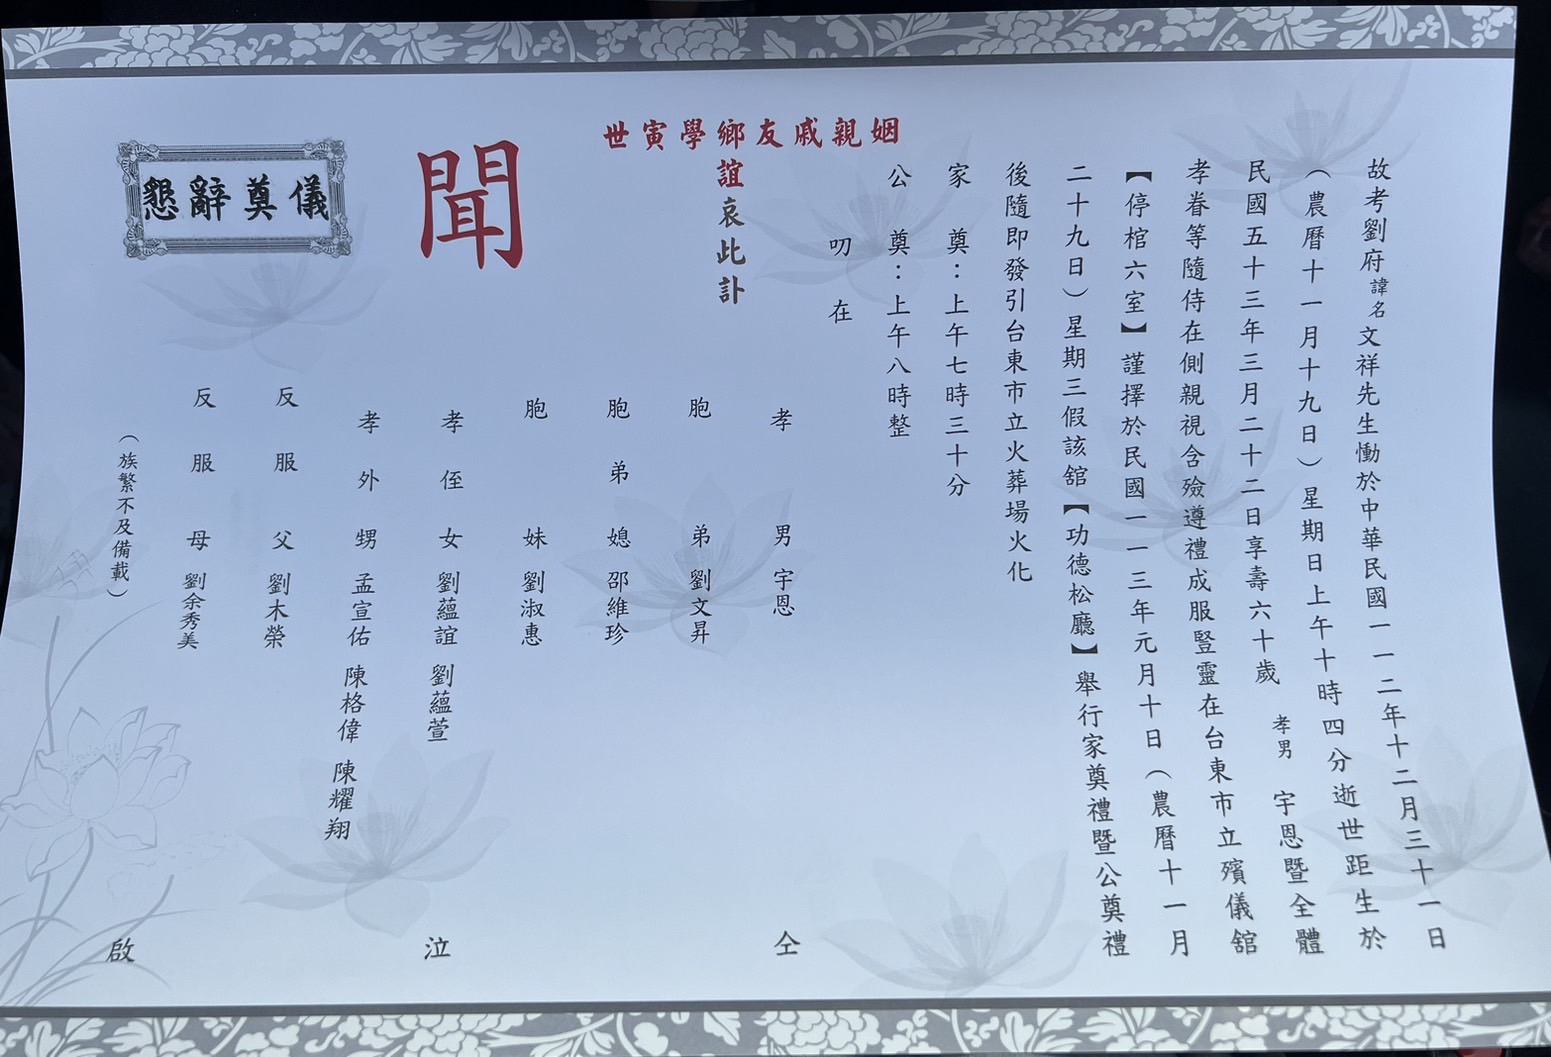 故考劉府諱名文祥先生慟於中華民國一一二年十二月三十一日
（農曆十一月十九日）星期日上午十時四分逝世距生於
民國五十三年三月二十二日享壽六十歲 孝男 宇恩暨全體
孝眷等隨侍在側親視含殮遵禮成服豎靈在台東市立殯儀舘
【停棺六室】謹擇於民國一一三年元月十日（農曆十一月
二十九日）星期三假該舘【功德松廳】舉行家奠禮暨公奠禮
後隨即發引台東市立火葬場火化
家 奠：上午七時三十分
公 奠：上午八時整
叨 在
姻親戚友鄉學寅世
誼哀此訃
聞
懇辭奠儀
孝 男 宇恩
胞 弟 劉文昇
胞 弟 媳 邵維珍
胞 妹 劉淑惠
孝 侄 女 劉蘊誼 劉蘊萱
孝 外 甥 孟宣佑 陳格偉 陳耀翔
反 服 父 劉木榮
反 服 母 劉余秀美
（族繁不及備載）
仝 泣 啟